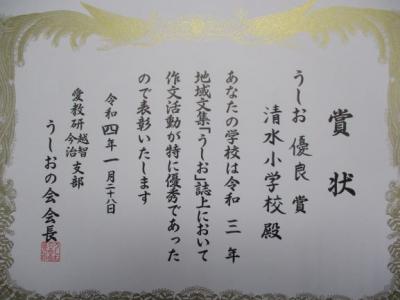 賞状
うしお優良賞
清水小学校殿
あなたの学校は令和三年
地域文集「うしお」誌上において
作文活動が特に優秀であった
ので表彰いたします
令和四年一月二十八日
愛教研越智今治支部
うしおの会会長